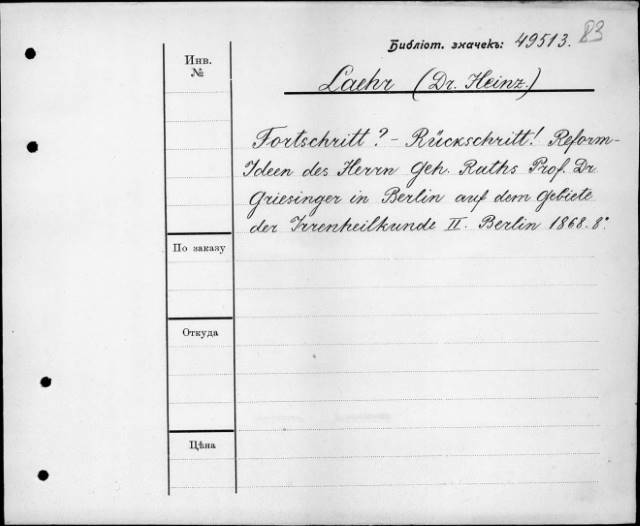 Библіот. значекъ: 49513. 83
Инв.
№
Laehr (Dr. Heinz.)
Fortschritt? - Rückschritt! Reform-
Ideen des Herrn Geh. Raths Prof. Dr.
Griesinger in Berlin auf dem Gebiete
der Irrenheilkunde II. Berlin 1868. 8°.
По заказу
Откуда
Цѣна